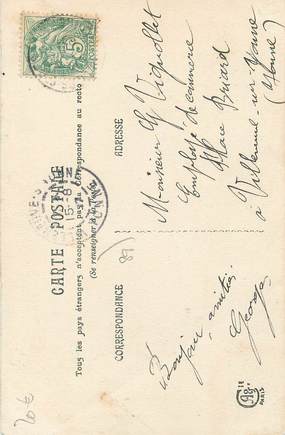 CARTE POSTALE
Tous les pays étrangers n'acceptent pas la Correspondance au recto
(Se renseigner à la Poste)
CORRESPONDANCE
ADRESSE
Bonjour amitiés
Georges
Monsieur G
Employé de commerce
Place Briard
à Villeneuve-sur-Yonne
(Yonne)
89
20€
5
PARIS